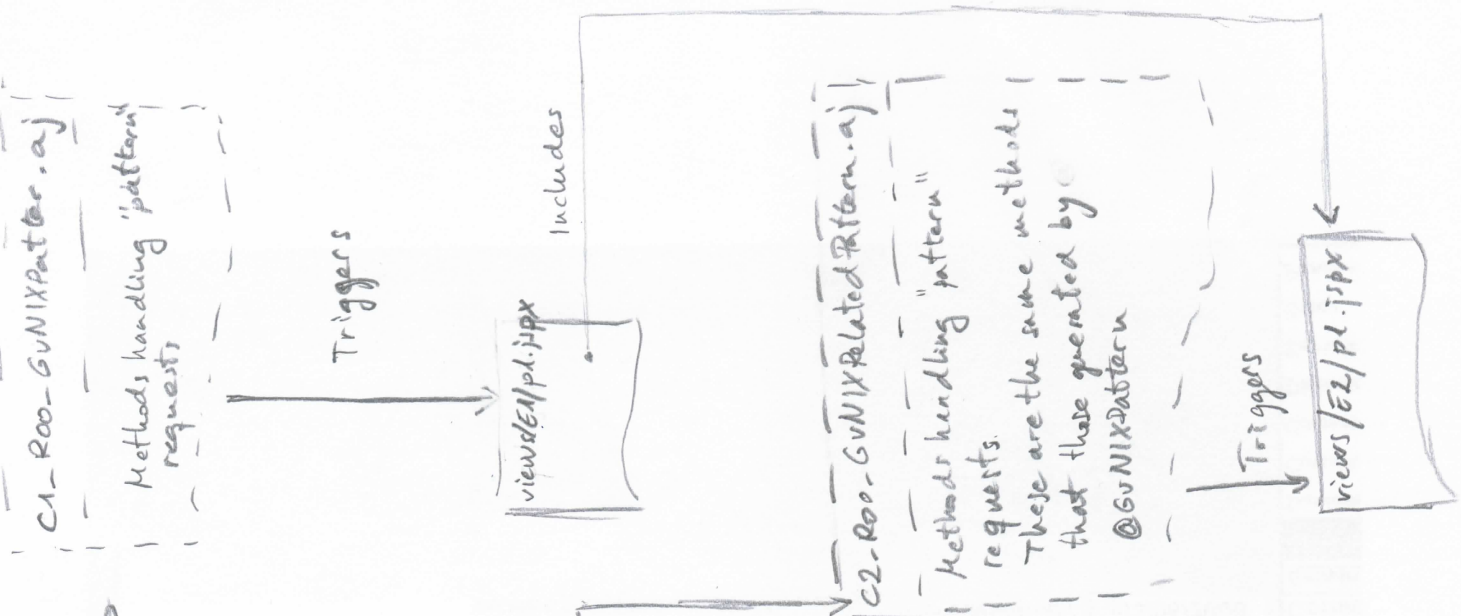 C1_Roo_GvNIXPatter.aj
Methods handling "pattern"
requests
Triggers
views/E1/pl.jspx
Includes
C2_Roo_GvNIXRelatedPattern.aj
Methods handling "pattern"
requests.
These are the same methods
that those generated by
@GvNIXPattern
Triggers
views/E2/pl.jspx